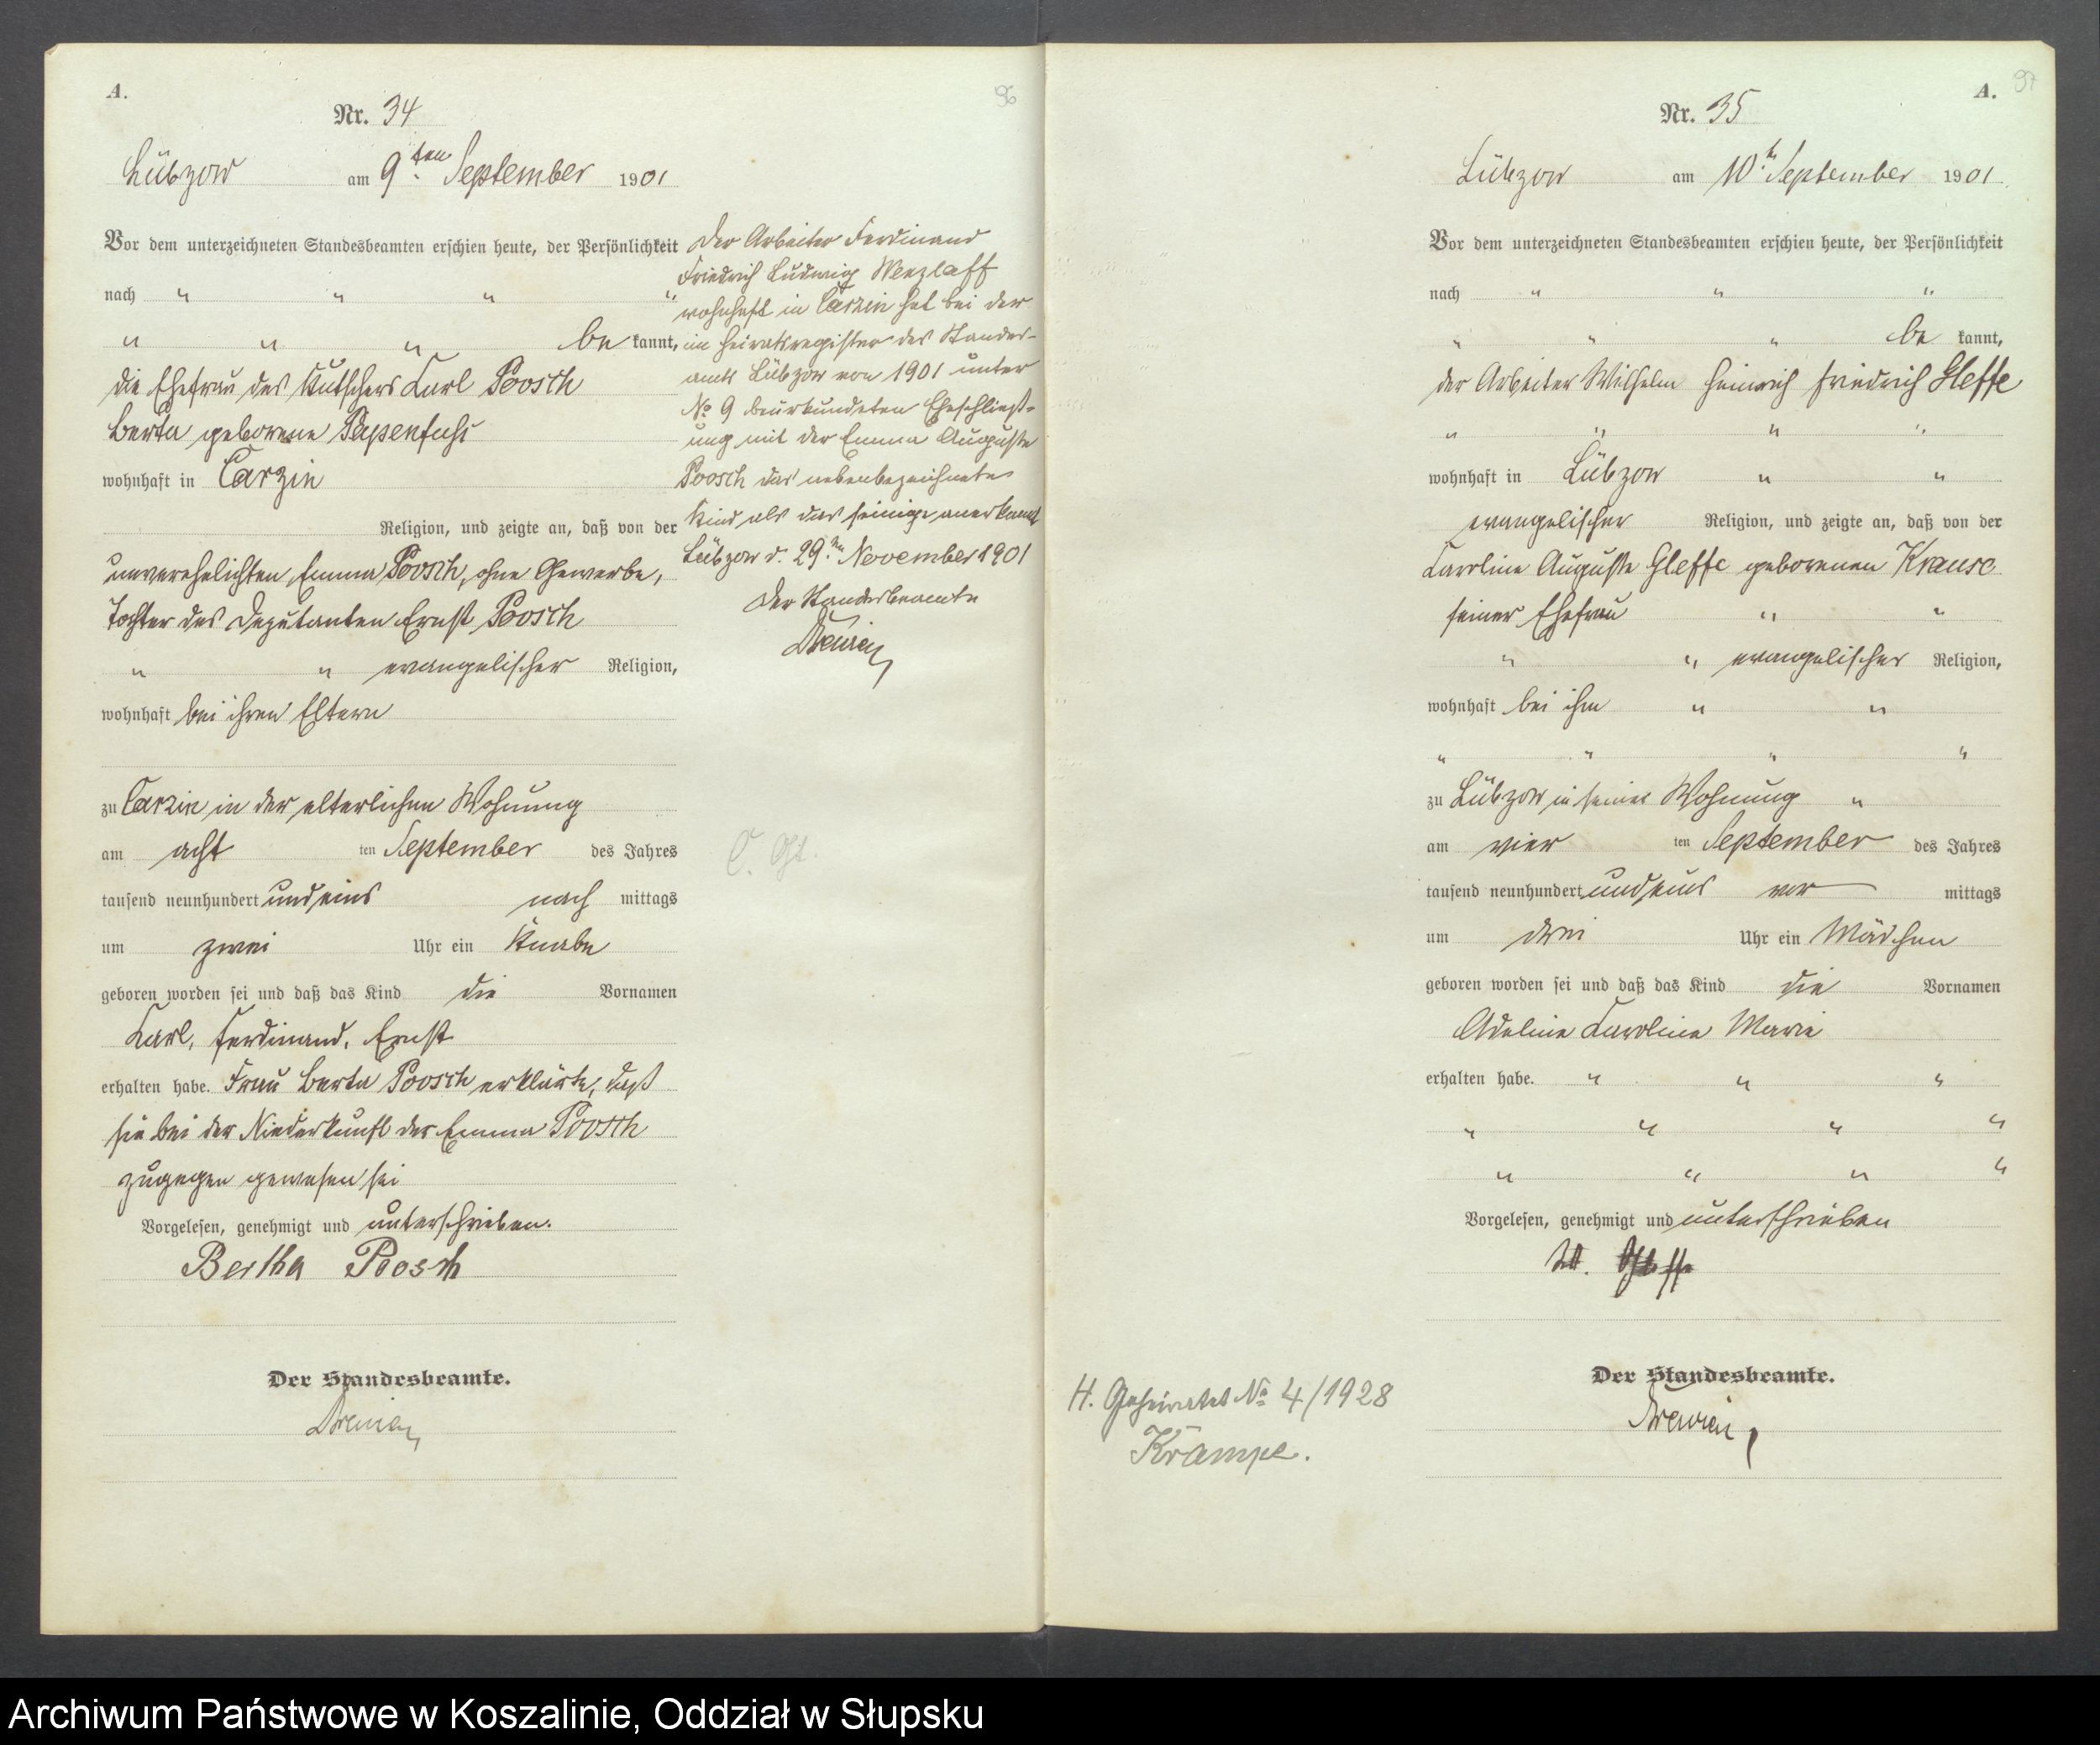 A.
96
Nr. 34
Lübzow am 9ten September 1901
Vor dem unterzeichneten Standesbeamten erschien heute, der Persönlichkeit
nach " " " "
" " " be kannt,
die Ehefrau des Kutschers Carl Poosch
Berta geborene Papenfuhs
wohnhaft in Carzin
Religion, und zeigte an, daß von der
unverehelichten Emma Poosch, ohne Gewerbe,
Tochter des Deputanten Ernst Poosch
" " evangelischer Religion,
wohnhaft bei ihren Eltern
zu Carzin in der elterlichen Wohnung
am acht ten September des Jahres
tausend neunhundert und eins nach mittags
um zwei Uhr ein Knabe
geboren worden sei und daß das Kind die Vornamen
Carl, Ferdinand, Ernst
erhalten habe. Frau Berta Poosch erklärte, daß
sie bei der Niederkunft der Emma Poosch
zugegen gewesen sei
Vorgelesen, genehmigt und unterschrieben.
Bertha Poosch
Der Standesbeamte.
Der Arbeiter Ferdinand
Friedrich Ludwig Wenzlaff
wohnhaft in Carzin hat bei der
im Heiratsregister des Standes-
amts Lübzow von 1901 unter
No 9 beurkundeten Eheschließ-
ung mit der Emma Auguste
Poosch das nebenbezeichnete
Kind als das seinige anerkannt
Lübzow d. 29ten November 1901
Der Standesbeamte
A.
97
Nr. 35
Lübzow am 10t September 1901
Vor dem unterzeichneten Standesbeamten erschien heute, der Persönlichkeit
nach " " "
" " " be kannt,
der Arbeiter Wilhelm Heinrich Friedrich Gleffe
" " " "
wohnhaft in Lübzow " "
evangelischer Religion, und zeigte an, daß von der
Caroline Auguste Gleffe geborenen Krause
seiner Ehefrau " "
" " evangelischer Religion,
wohnhaft bei ihm " "
" " " "
zu Lübzow in seiner Wohnung "
am vier ten September des Jahres
tausend neunhundert und eins vor mittags
um drei Uhr ein Mädchen
geboren worden sei und daß das Kind die Vornamen
Adeline Caroline Marie
erhalten habe. " " "
" " " "
" " " "
Vorgelesen, genehmigt und unterschrieben
W. Gleffe
Der Standesbeamte.
H. Geheiratet No 4/1928
Krampe.
Archiwum Państwowe w Koszalinie, Oddział w Słupsku